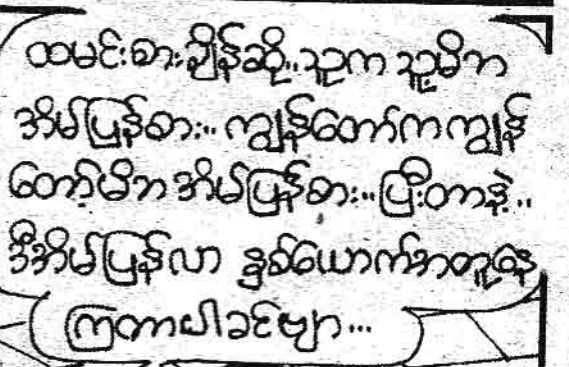 ထမင်းစားချိန်ဆို..သူက သူ့မိဘ
အိမ်ပြန်စား.. ကျွန်တော်ကကျွန်
တော့်မိဘအိမ်ပြန်စား..ပြီးတာနဲ့..
ဒီအိမ်ပြန်လာ နှစ်ယောက်အတူနေ
ကြတာပါခင်ဗျာ...